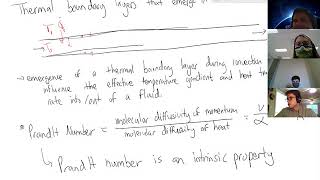 Thermal boundary layers that emerge
- emergence of a thermal boundary layer during convection
influence the effective temperature gradient and heat
rate into/out of a fluid.
* Prandtl Number = molecular diffusivity of momentum = ν
molecular diffusivity of heat α
↳ Prandtl number is an intrinsic property